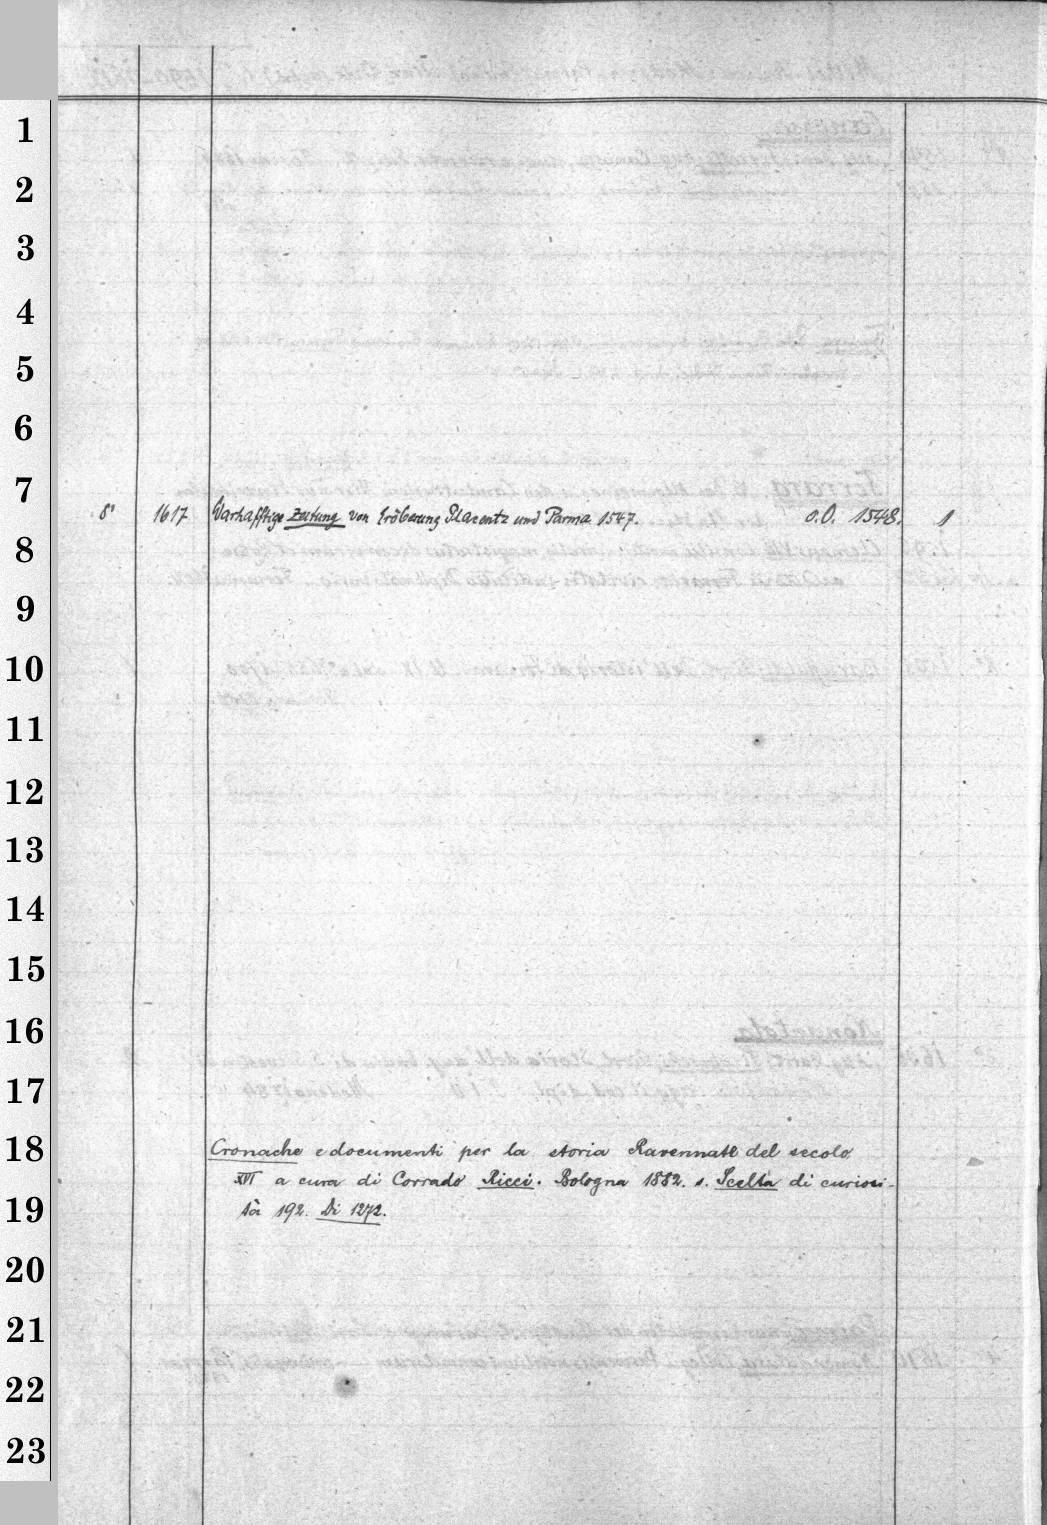 1
2
3
4
5
6
7
8° 1617 Warhafftige Zeitung von Eröberung Placentz und Parma 1547. o.O. 1548. 1
8
9
10
11
12
13
14
15
16
17
18
Cronache e documenti per la storia Ravennate del secolo
XVI a cura di Corrado Ricci. Bologna 1882. s. Scelta di curiosi-
19
tà 192. Di 1272.
20
21
22
23